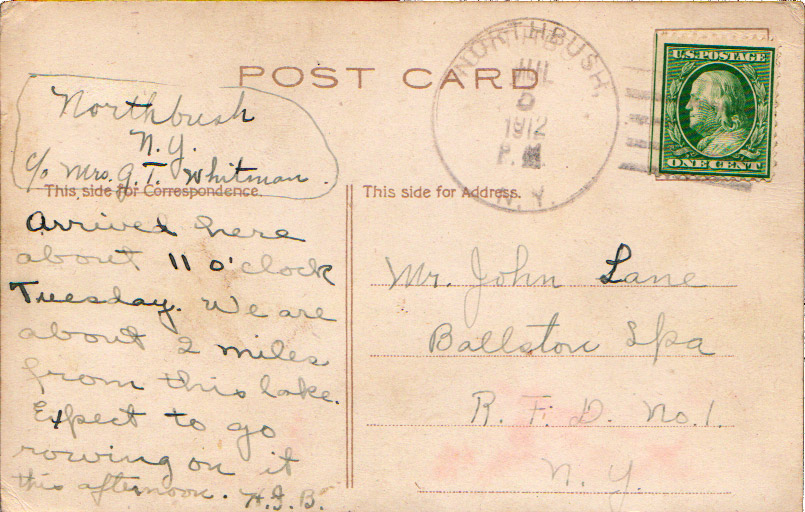 POST CARD
NORTHBUSH,
JUL
1912
P.M.
N.Y.
U.S. POSTAGE
ONE CENT
Northbush
N.Y.
c/o Mrs. G. T. Whitman.
This side for Correspondence.
Arrived here
about 11 o'clock
Tuesday. We are
about 2 miles
from this lake.
Expect to go
rowing on it
this afternoon. H.G.B.
This side for Address.
Mr. John Lane
Ballston Spa
R. F. D. No. 1.
N. Y.